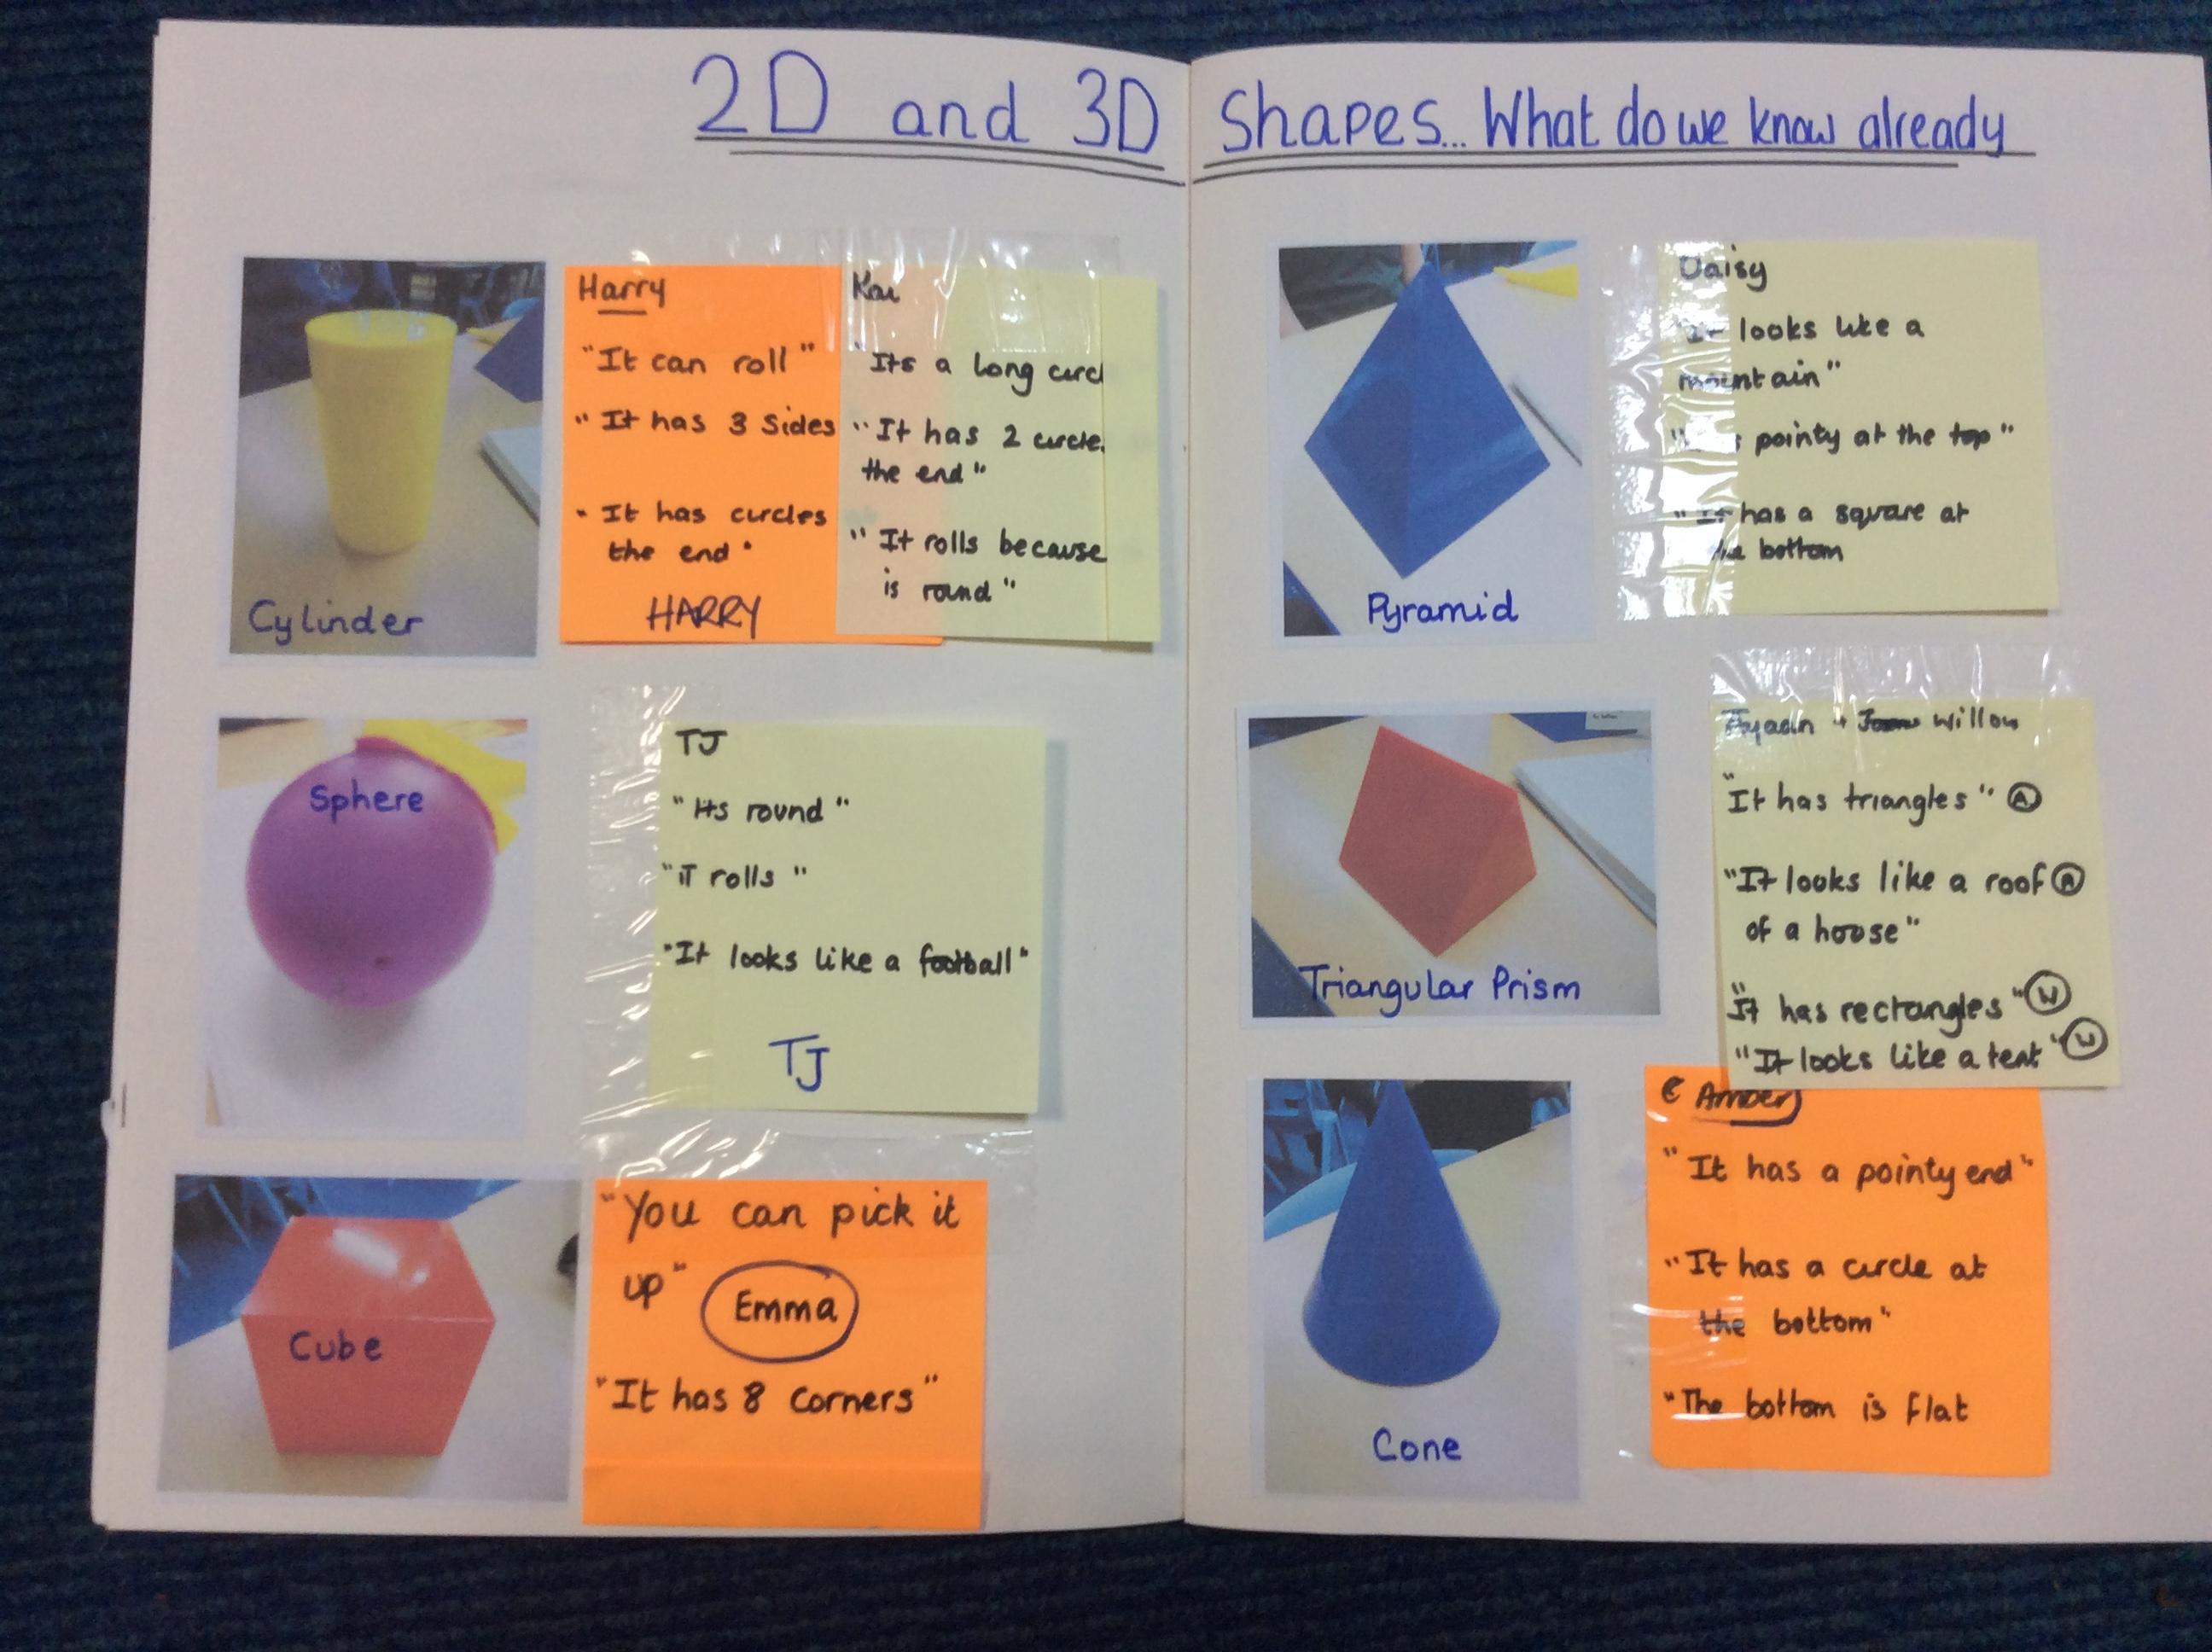 2D and 3D Shapes... What do we know already
Harry
"It can roll"
"It has 3 sides
"It has circles
the end"
HARRY
Kai
"Its a long circl
"It has 2 circle
the end"
"It rolls because
is round"
Cylinder
TJ
"Its round"
"iT rolls"
"It looks like a football"
TJ
Sphere
"You can pick it
up"
Emma
"It has 8 corners"
Cube
Daisy
"It looks like a
mountain"
pointy at the top"
"It has a square at
the bottom
Pyramid
+ Willow
"It has triangles" A
"It looks like a roof A
of a house"
"It has rectangles" W
"It looks like a tent" W
Triangular Prism
Amber
"It has a pointy end"
"It has a circle at
the bottom"
"The bottom is flat
Cone